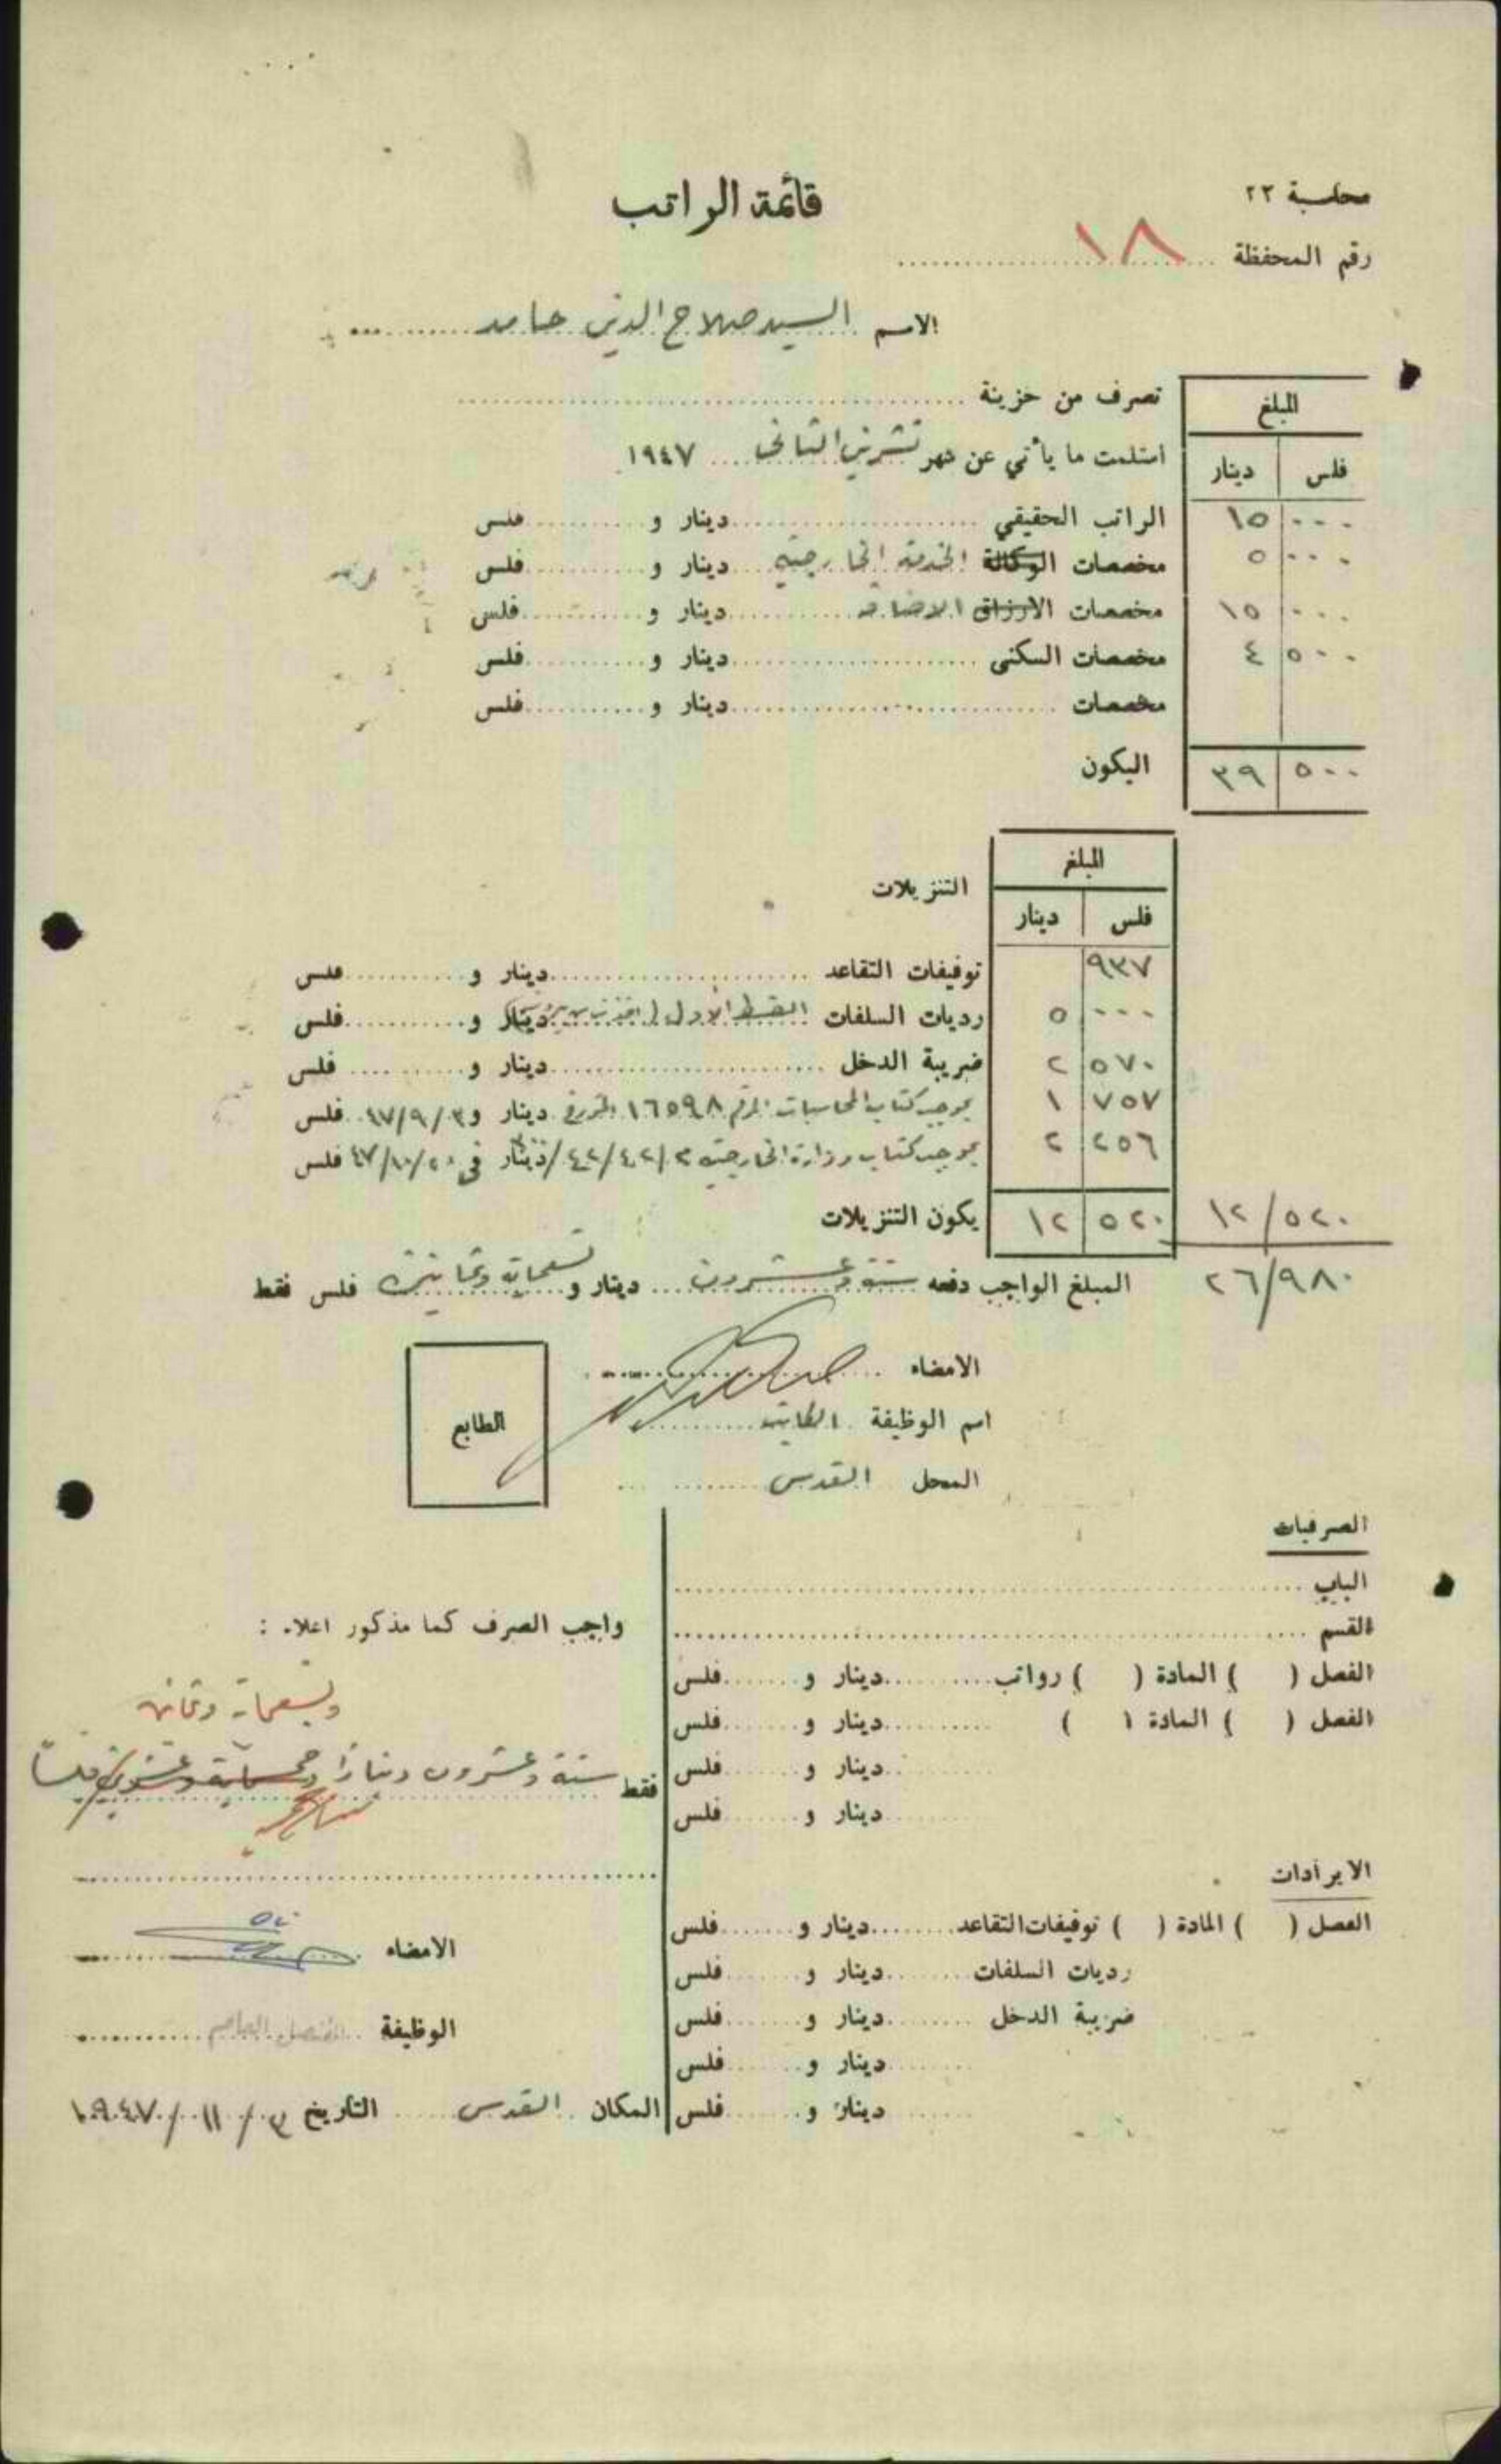 محاسبة ٢٢
قائمة الراتب
رقم المحفظة ١٨
الاسم السيد صلاح الدين حامد
المبلغ
تصرف من خزينة
فلس دينار
استلمت ما يأتي عن شهر تشرين الثاني ١٩٤٧
٠٠٠ ١٥ الراتب الحقيقي دينار و فلس
٠٠٠ ٥ مخصصات الوكالة الخدمة الخارجية دينار و فلس
٠٠٠ ١٥ مخصصات الارزاق الاضافية دينار و فلس
٥٠٠ ٤ مخصصات السكنى دينار و فلس
مخصصات دينار و فلس
٥٠٠ ٣٩ اليكون
المبلغ
التنزيلات
فلس دينار
٩٣٧ توقيفات التقاعد دينار و فلس
٠٠٠ ٥ رديات السلفات القسط الأول دينار و فلس
٥٧٠ ٢ ضريبة الدخل دينار و فلس
٧٥٧ ١ بموجب كتاب المحاسبات المرقم ١٦٥٩٨ المؤرخ دينار و ٤٧/٩/٣ فلس
٢٥٦ ٢ بموجب كتاب وزارة الخارجية دينار في فلس
١٢/٥٢٠ ٥٢٠ ١٢ يكون التنزيلات
٢٦/٩٨٠ المبلغ الواجب دفعه ستة وعشرون دينار و تسعماية وثمانين فلس فقط
الامضاء
اسم الوظيفة الكاتب
الطابع
المحل القدس
الصرفيات
الباب
القسم
الفصل ( ) المادة ( ) رواتب دينار و فلس
الفصل ( ) المادة ( ) دينار و فلس
دينار و فلس
دينار و فلس
الايرادات
الفصل ( ) المادة ( ) توقيفات التقاعد دينار و فلس
رديات السلفات دينار و فلس
ضريبة الدخل دينار و فلس
دينار و فلس
دينار و فلس
واجب الصرف كما مذكور اعلاه :
وتسعماية وثمانين
فقط ستة وعشرون دينارا وخمسماية وعشرون فلساً
الامضاء
الوظيفة القنصل العام
المكان القدس التاريخ ٣/١١/١٩٤٧